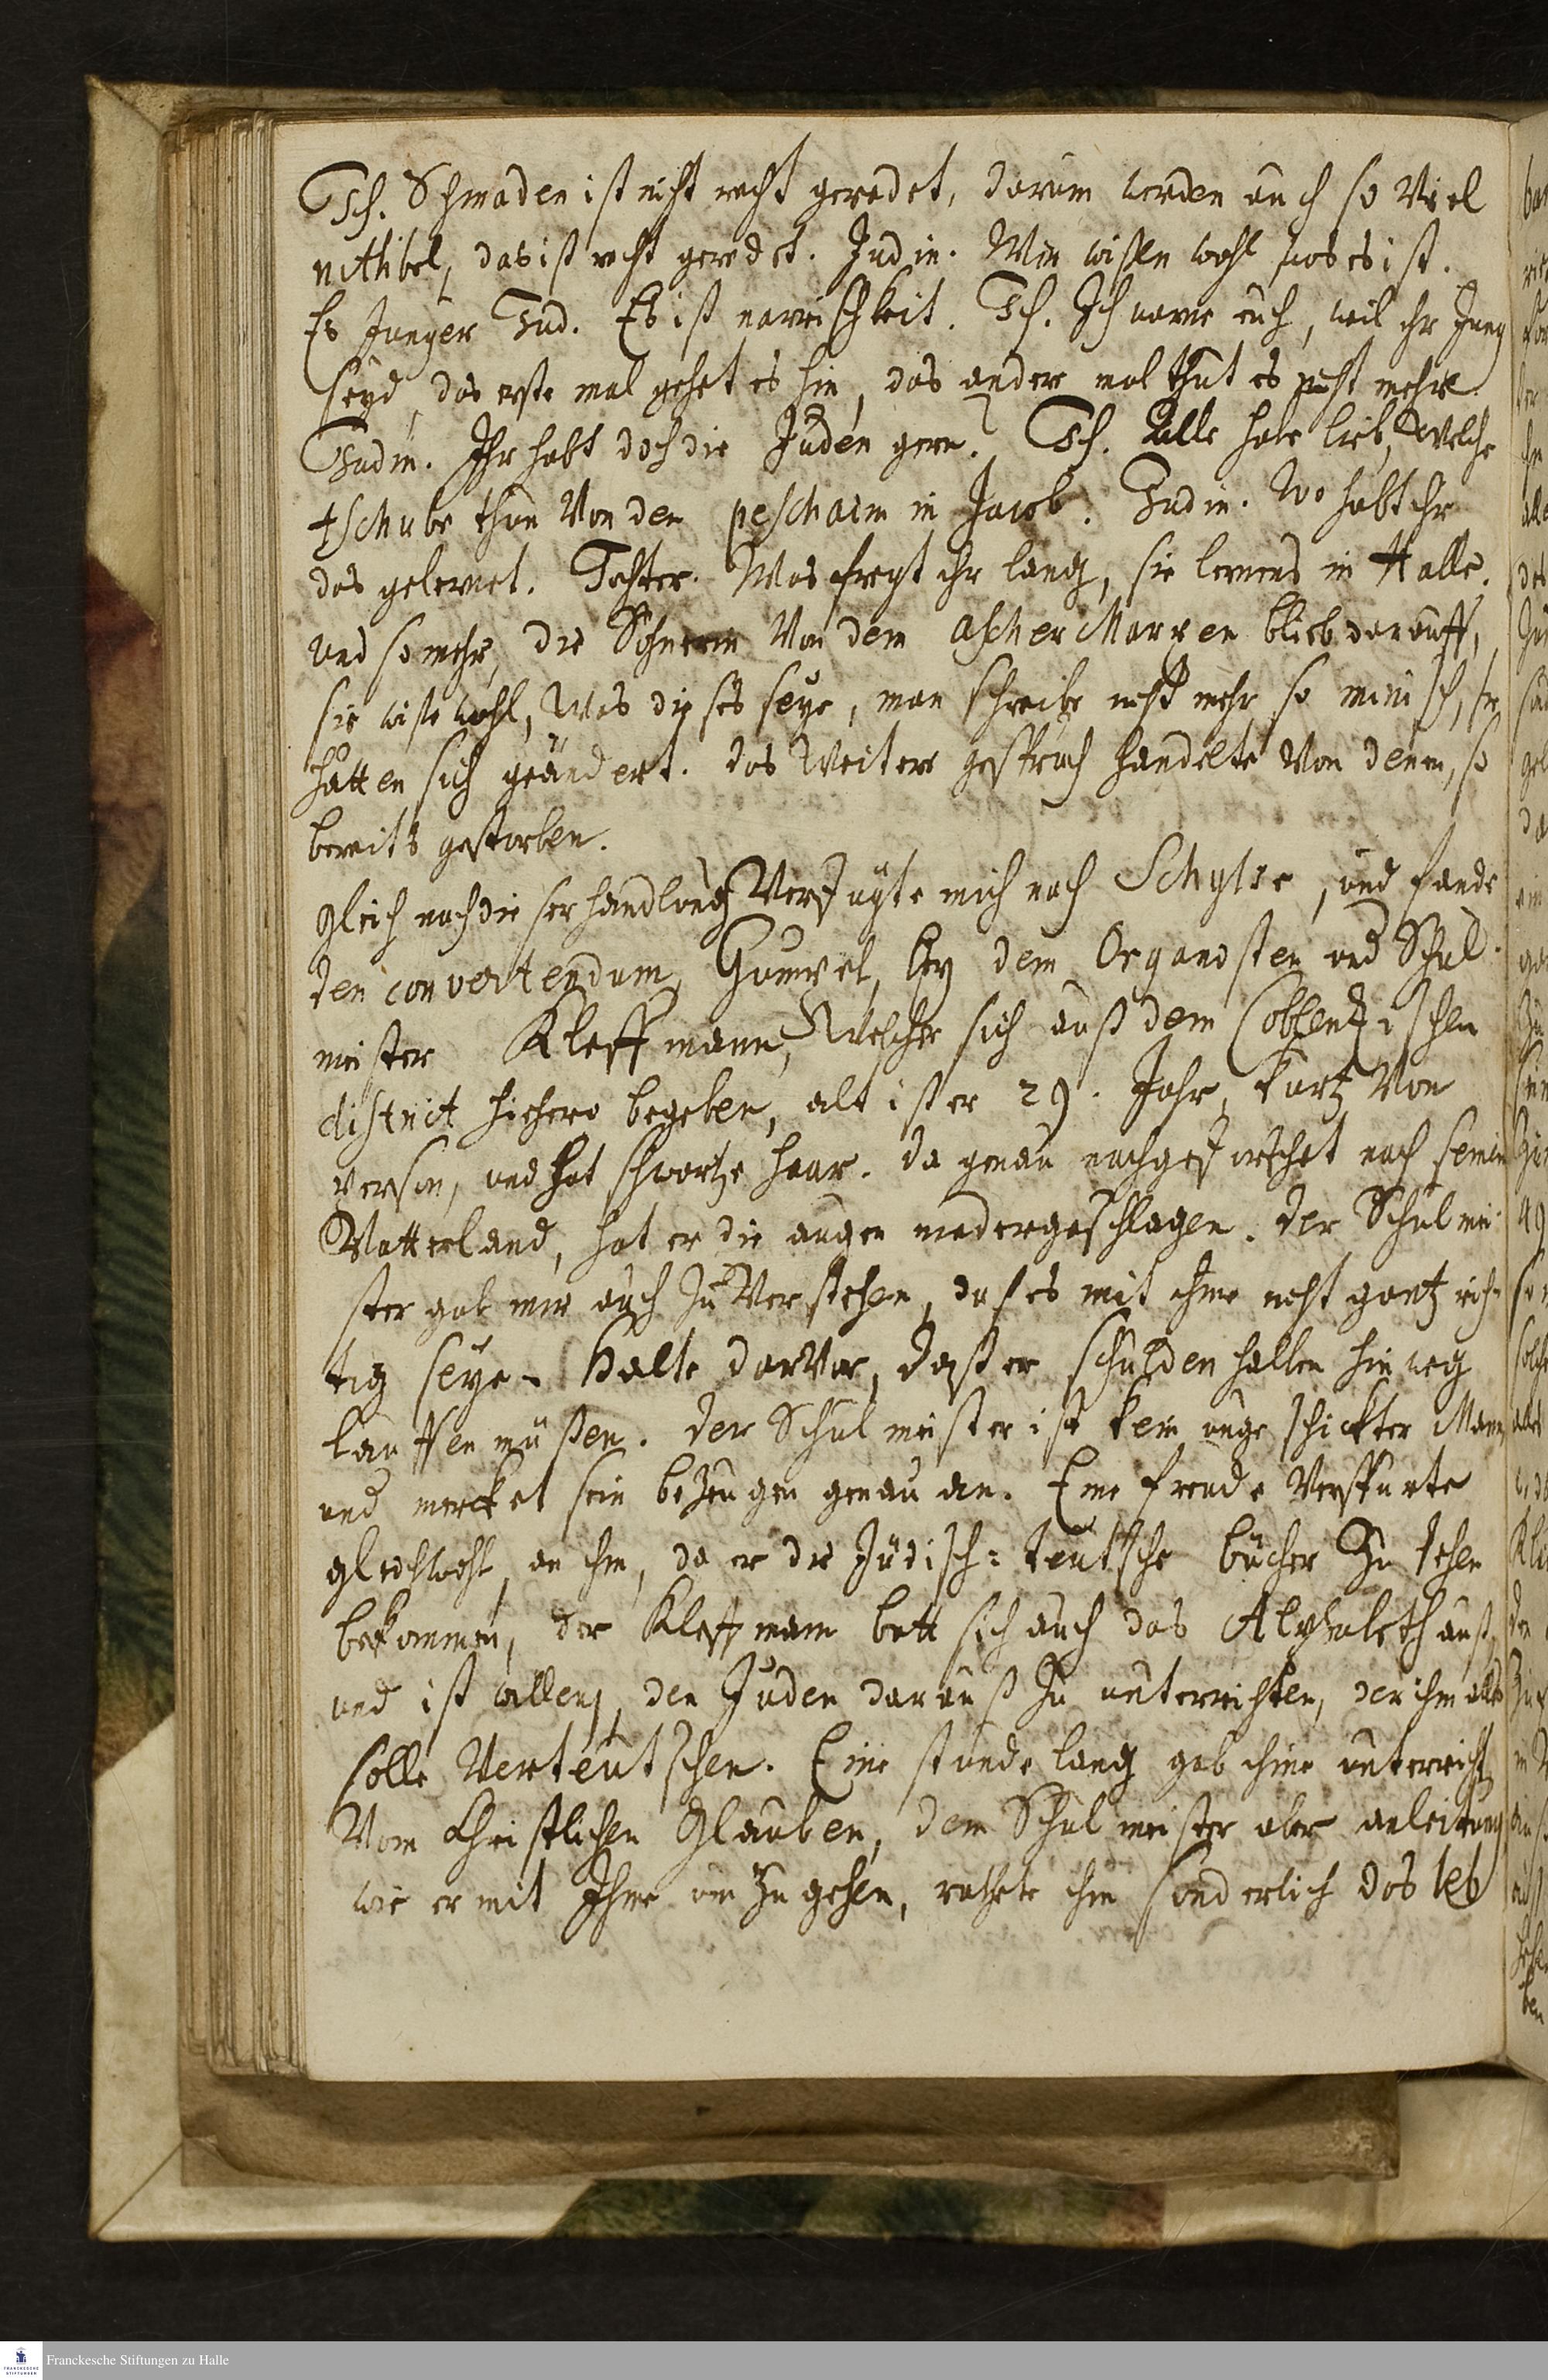 Ich. Schmaden ist nicht recht geredet, darum werden auch so viel
nithbel, das ist recht geredet. Judin. Wir wißen wohl was es ist.
Es Junger Jud. Es ist narrischkeit. Ich. Ich warne euch, weil ihr Jung
seyd, das erste mal gehet es hin, das ander mal thut es nicht mehr.
Judin. Ihr habt doch die Juden gern? Ich. Alle habe lieb, welche
tschube thun von den peschaim in Jacob. Judin. Wo habt ihr
das gelernet. Tochter. Was fregt ihr lang, sie lernens in Halle.
und so mehr, die Schnerin von dem ascher Marxen blieb darauff,
sie wiße wohl, was dieses seye, man schreibe nicht mehr so minisch, sie
hätten sich geändert. das weitere gespräch handelte von denen, so
bereits gestorben.
Gleich nach dieser handlung verfügte mich nach Schylse, und fande
den convertendum, Gumpel, bey dem Organisten und Schul-
meister Kleffmann, welcher sich auß dem Coblentzischen
district hiehero begeben, alt ist er 29. Jahr, kurtz von
person, und hat schwartze haar. da genau nachgeforschet nach seinem
Vatterland, hat er die augen niedergeschlagen. der Schulmei-
ster gab mir auch zu verstehen, daß es mit ihme nicht gantz rich-
tig seye. Halte darvor, daß er schulden halben hinweg
lauffen müßen. der Schulmeister ist kein ungeschickter Mann,
und mercket sein bezeugen genau an. Eine freude verspürte
gleichwohl, an ihm, da er die Jüdisch-teutsche bücher zu sehen
bekommen, der Kleffmann bott sich auch das Alphabeth auß,
und ist willens, den Juden darauß zu unterrichten, der ihm alles
solle verteutschen. Eine stunde lang gab ihme unterricht
vom Christlichen Glauben, dem Schulmeister aber anleitung,
wie er mit Ihme umzugehen, rathete ihm sonderlich das leb
Franckesche Stiftungen zu Halle